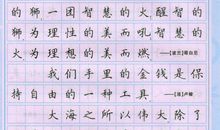 的狮一团智慧的火醒智的
狮为理性的美而吼智慧的
火为理想的美而燃
——[波兰]显克微支
我们手里的金钱是保
持自由的一种工具
——[法]卢梭
大海之所以伟大除了